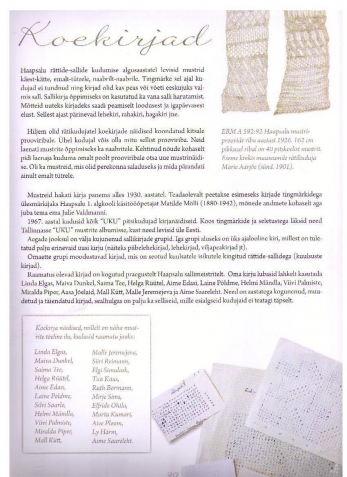 Koekirjad
Haapsalu rättide-sallide kudumise algusaastatel levisid mustrid
käest-kätte, emalt-tütrele, naabrilt-naabrile. Tingmärke sel ajal ku-
dujad ei tundnud ning kirjad olid kas peas või võeti eeskujuks val-
mis sall. Sallikirja õppimiseks on kasutatud ka vana salli harutamist.
Mõtteid uuteks kirjadeks saadi peamiselt loodusest ja igapäevasest
elust. Sellest ajast pärinevad lehekiri, rahakiri, hagakiri jne.
Hiljem olid rätikudujatel koekirjade näidised koondatud kitsale
prooviribale. Ühel kudujal võis olla mitu sellist prooviriba. Neid
laenati mustrite õppimiseks ka naabritele. Kehtinud nõude kohaselt
pidi laenaja kuduma omalt poolt prooviribale otsa uue mustrinäidi-
se. Oli ka mustreid, mis olid perekonna saladuseks ja mida pärandati
ainult emalt tütrele.
ERM A 592:92 Haapsalu mustri-
proovide riba aastast 1926. 162 cm
pikkusel ribal on 40 pitskoelist mustrit.
Eseme kinkis muuseumile rätikuduja
Maria Aarjõe (sünd. 1901).
Mustreid hakati kirja panema alles 1930. aastatel. Teadaolevalt peetakse esimeseks kirjade tingmärkidega
ülesmärkijaks Haapsalu 1. algkooli käsitööõpetajat Matilde Mölli (1880-1942), mõnede andmete kohaselt aga
juba tema ema Julie Valdmanni.
1967. aastal kudusid kõik "UKU" pitsikudujad kirjanäidiseid. Koos tingmärkide ja seletustega läksid need
Tallinnasse "UKU" mustrite albumisse, kust need levisid üle Eesti.
Aegade jooksul on välja kujunenud sallikirjade grupid. Iga grupi aluseks on üks ajalooline kiri, millest on tule-
tatud palju erinevaid uusi kirju (näiteks piibelehekirjad, lehekirjad, viljapeakirjad jt).
Omaette grupi moodustavad kirjad, mis on seotud kuulsatele isikutele kingitud rättide-sallidega (kuulsuste
kirjad).
Raamatus olevad kirjad on kogutud praegustelt Haapsalu sallimeistritelt. Oma kirju lubasid lahkelt kasutada
Linda Elgas, Maiva Dunkel, Saima Tee, Helga Rüütel, Aime Edasi, Laine Põldme, Helmi Mändla, Viivi Palmiste,
Miralda Piper, Aasa Jõelaid, Mall Kätt, Malle Jeremejeva ja Aime Saareleht. Need on aastatega kogunenud, muu-
detud ja täiendatud kirjad, sealhulgas on palju ka selliseid, mille esialgseid kudujaid ei teatagi täpselt.
Koekirja näidised, millelt on näha must-
rite teeline ilu, kudusid raamatu jaoks:
Linda Elgas,
Maiva Dunkel,
Saima Tee,
Helga Rüütel,
Aime Edasi,
Laine Põldme,
Silvi Saarlo,
Helmi Mändla,
Viivi Palmiste,
Miralda Piper,
Mall Kätt,
Malle Jeremejeva,
Siiri Reimann,
Elgi Sonduak,
Tiia Kaus,
Ruth Bormann,
Mirje Sims,
Elfride Ohila,
Marta Kumari,
Aive Pleem,
Ly Härm,
Aime Saareleht.